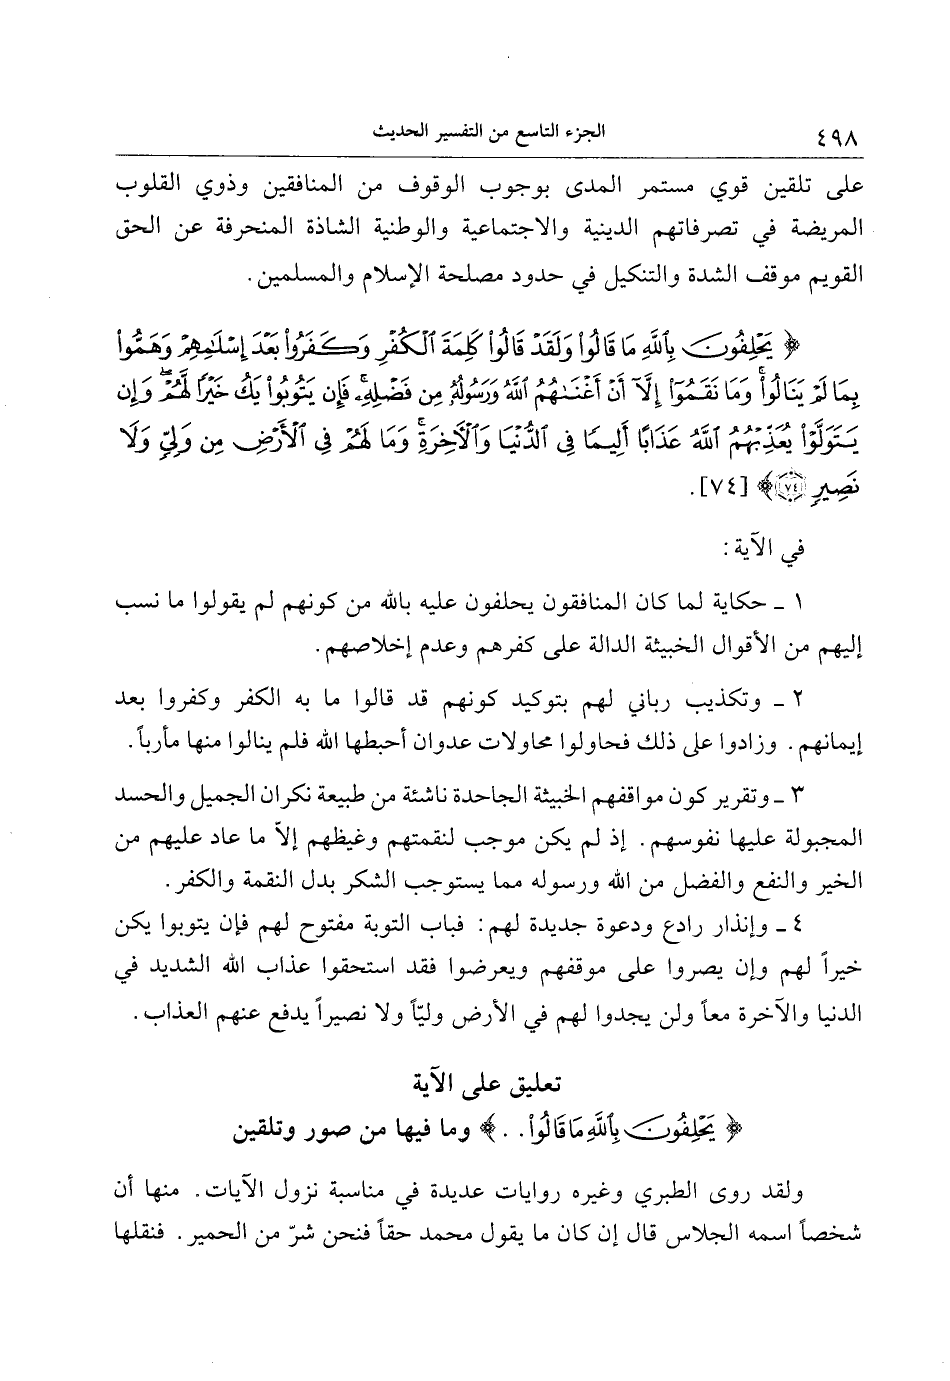 ٤٩٨ الجزء التاسع من التفسير الحديث
على تلقين قوي مستمر المدى بوجوب الوقوف من المنافقين وذوي القلوب
المريضة في تصرفاتهم الدينية والاجتماعية والوطنية الشاذة المنحرفة عن الحق
القويم موقف الشدة والتنكيل في حدود مصلحة الإسلام والمسلمين .
﴿ يَحْلِفُونَ بِٱللَّهِ مَا قَالُوا۟ وَلَقَدْ قَالُوا۟ كَلِمَةَ ٱلْكُفْرِ وَكَفَرُوا۟ بَعْدَ إِسْلَٰمِهِمْ وَهَمُّوا۟
بِمَا لَمْ يَنَالُوا۟ۚ وَمَا نَقَمُوٓا۟ إِلَّآ أَنْ أَغْنَىٰهُمُ ٱللَّهُ وَرَسُولُهُۥ مِن فَضْلِهِۦۚ فَإِن يَتُوبُوا۟ يَكُ خَيْرًا لَّهُمْۖ وَإِن
يَتَوَلَّوْا۟ يُعَذِّبْهُمُ ٱللَّهُ عَذَابًا أَلِيمًا فِى ٱلدُّنْيَا وَٱلْءَاخِرَةِۚ وَمَا لَهُمْ فِى ٱلْأَرْضِ مِن وَلِىٍّ وَلَا
نَصِيرٍ ٧٤ ﴾ [٧٤].
في الآية :
١ ـ حكاية لما كان المنافقون يحلفون عليه بالله من كونهم لم يقولوا ما نسب
إليهم من الأقوال الخبيثة الدالة على كفرهم وعدم إخلاصهم .
٢ ـ وتكذيب رباني لهم بتوكيد كونهم قد قالوا ما به الكفر وكفروا بعد
إيمانهم . وزادوا على ذلك فحاولوا محاولات عدوان أحبطها الله فلم ينالوا منها مأرباً .
٣ ـ وتقرير كون مواقفهم الخبيثة الجاحدة ناشئة من طبيعة نكران الجميل والحسد
المجبولة عليها نفوسهم . إذ لم يكن موجب لنقمتهم وغيظهم إلاّ ما عاد عليهم من
الخير والنفع والفضل من الله ورسوله مما يستوجب الشكر بدل النقمة والكفر .
٤ ـ وإنذار رادع ودعوة جديدة لهم : فباب التوبة مفتوح لهم فإن يتوبوا يكن
خيراً لهم وإن يصروا على موقفهم ويعرضوا فقد استحقوا عذاب الله الشديد في
الدنيا والآخرة معاً ولن يجدوا لهم في الأرض وليّاً ولا نصيراً يدفع عنهم العذاب .
تعليق على الآية
﴿ يَحْلِفُونَ بِٱللَّهِ مَا قَالُوا۟ . . ﴾ وما فيها من صور وتلقين
ولقد روى الطبري وغيره روايات عديدة في مناسبة نزول الآيات . منها أن
شخصاً اسمه الجلاس قال إن كان ما يقول محمد حقاً فنحن شرّ من الحمير . فنقلها